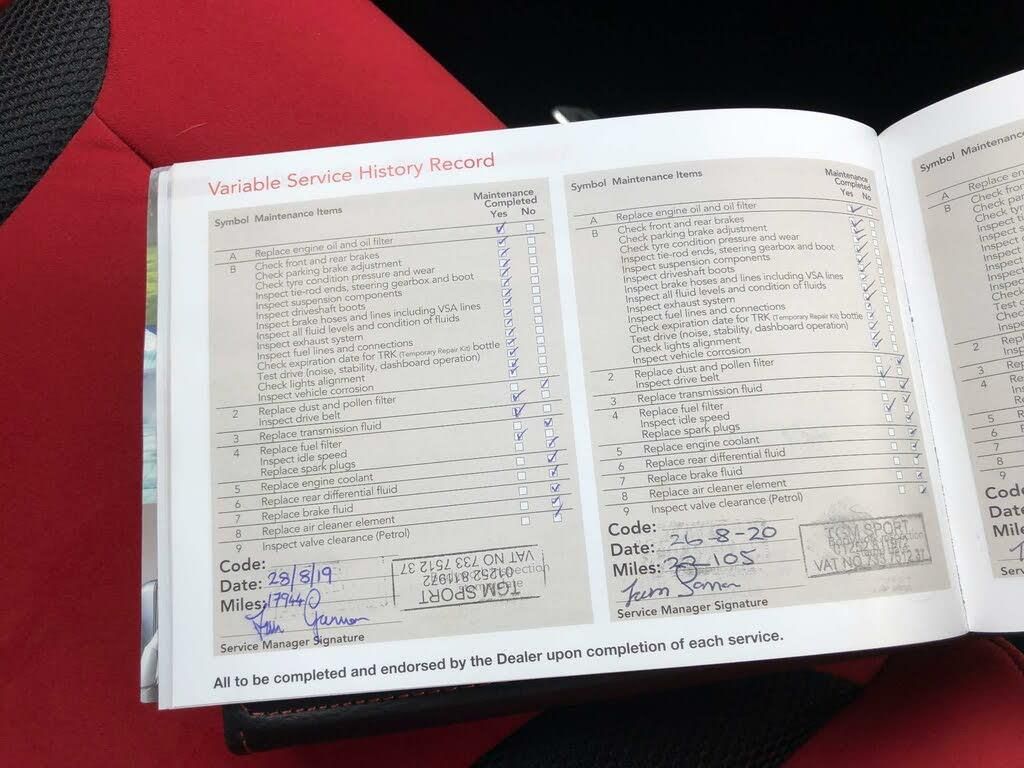 Variable Service History Record
Symbol Maintenance Items
Maintenance
Completed
Yes No
A Replace engine oil and oil filter
B Check front and rear brakes
Check parking brake adjustment
Check tyre condition pressure and wear
Inspect tie-rod ends, steering gearbox and boot
Inspect suspension components
Inspect driveshaft boots
Inspect brake hoses and lines including VSA lines
Inspect all fluid levels and condition of fluids
Inspect exhaust system
Inspect fuel lines and connections
Check expiration date for TRK (Temporary Repair Kit) bottle
Test drive (noise, stability, dashboard operation)
Check lights alignment
Inspect vehicle corrosion
2 Replace dust and pollen filter
Inspect drive belt
3 Replace transmission fluid
4 Replace fuel filter
Inspect idle speed
Replace spark plugs
5 Replace engine coolant
6 Replace rear differential fluid
7 Replace brake fluid
8 Replace air cleaner element
9 Inspect valve clearance (Petrol)
Code:
Date: 28/8/19
Miles: 17940
Service Manager Signature
TGM SPORT
01252 811972
VAT NO 733 7512 37
Symbol Maintenance Items
Maintenance
Completed
Yes No
A Replace engine oil and oil filter
B Check front and rear brakes
Check parking brake adjustment
Check tyre condition pressure and wear
Inspect tie-rod ends, steering gearbox and boot
Inspect suspension components
Inspect driveshaft boots
Inspect brake hoses and lines including VSA lines
Inspect all fluid levels and condition of fluids
Inspect exhaust system
Inspect fuel lines and connections
Check expiration date for TRK (Temporary Repair Kit) bottle
Test drive (noise, stability, dashboard operation)
Check lights alignment
Inspect vehicle corrosion
2 Replace dust and pollen filter
Inspect drive belt
3 Replace transmission fluid
4 Replace fuel filter
Inspect idle speed
Replace spark plugs
5 Replace engine coolant
6 Replace rear differential fluid
7 Replace brake fluid
8 Replace air cleaner element
9 Inspect valve clearance (Petrol)
Code:
Date: 26-8-20
Miles: 105
Service Manager Signature
TGM SPORT
VAT NO
All to be completed and endorsed by the Dealer upon completion of each service.
Symbol Maintenance
A Replace en
B Check fron
Check par
Check tyr
Inspect
Inspect
Inspect
Inspect
Inspect
Inspect
Inspect
Check
Test
Che
Ins
2
3
4
5
6
7
8
9
Code
Date
Mil
Serv